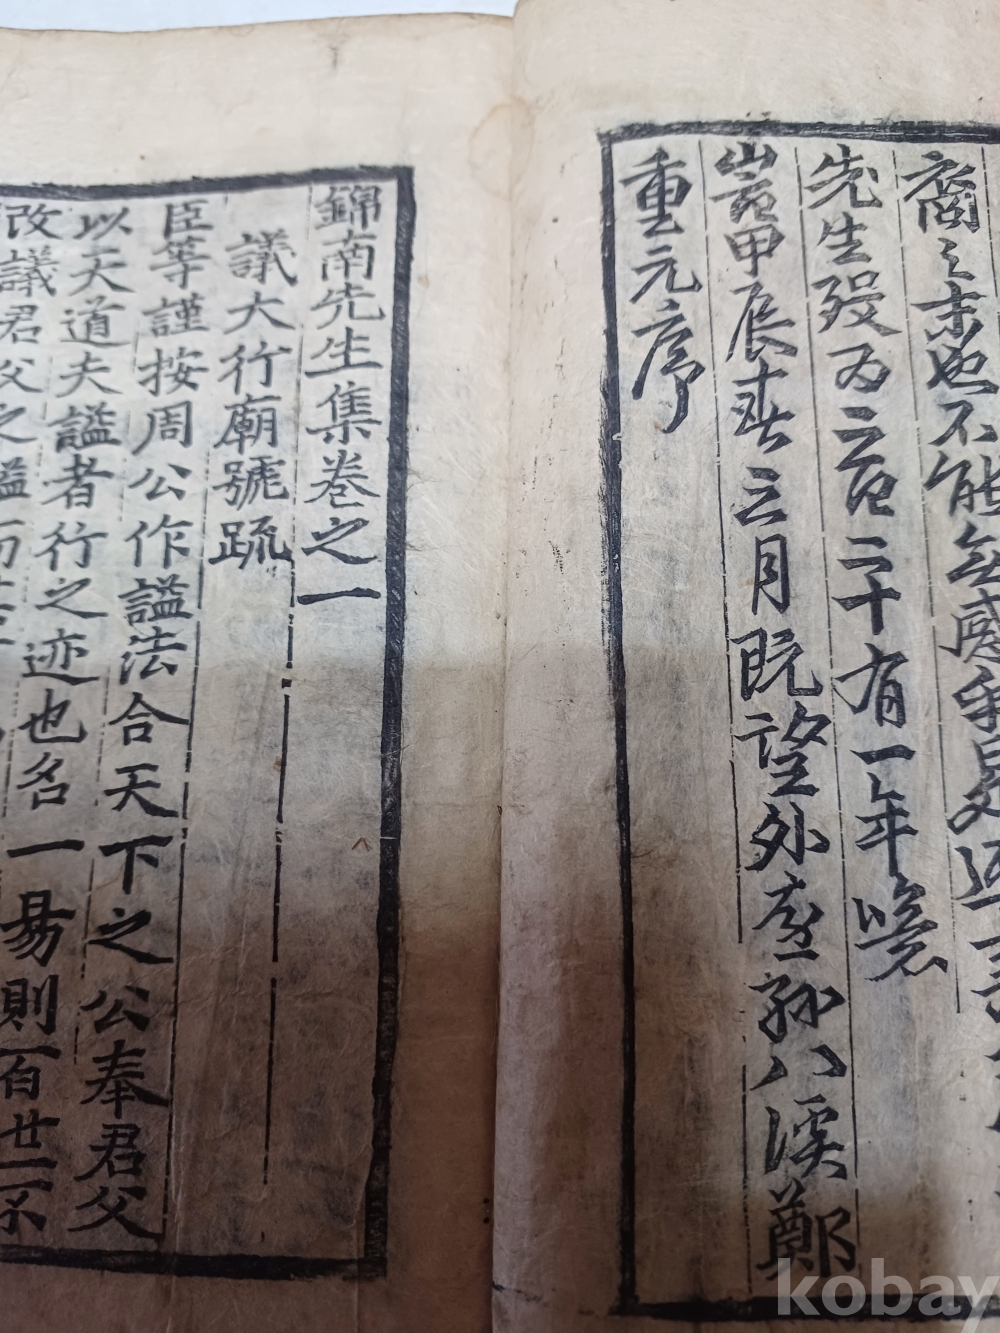 裔之末也不能無感
先生歿为三百二十有一年
甲辰春三月既望外裔孫八溪鄭
重元序
錦南先生集卷之一
議大行廟號疏
臣等謹按周公作謚法合天下之公奉君父
以天道夫謚者行之迹也名一易則百世不
改議君父之謚而
kobay